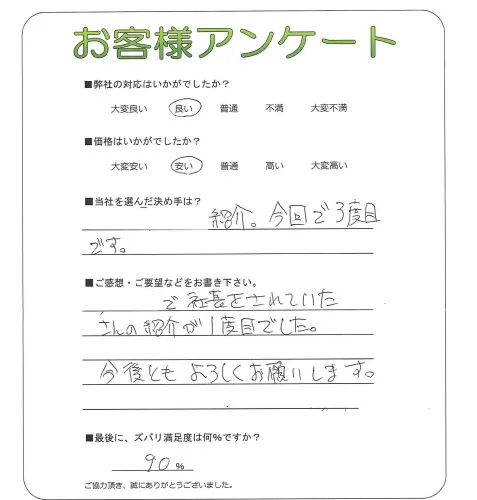 お客様アンケート
■弊社の対応はいかがでしたか?
大変良い 良い 普通 不満 大変不満
■価格はいかがでしたか?
大変安い 安い 普通 高い 大変高い
■当社を選んだ決め手は?
紹介。今回で3度目
です。
■ご感想・ご要望などをお書き下さい。
で社長をされていた
さんの紹介が1度目でした。
今後ともよろしくお願いします。
■最後に、ズバリ満足度は何%ですか?
90%
ご協力頂き、誠にありがとうございました。